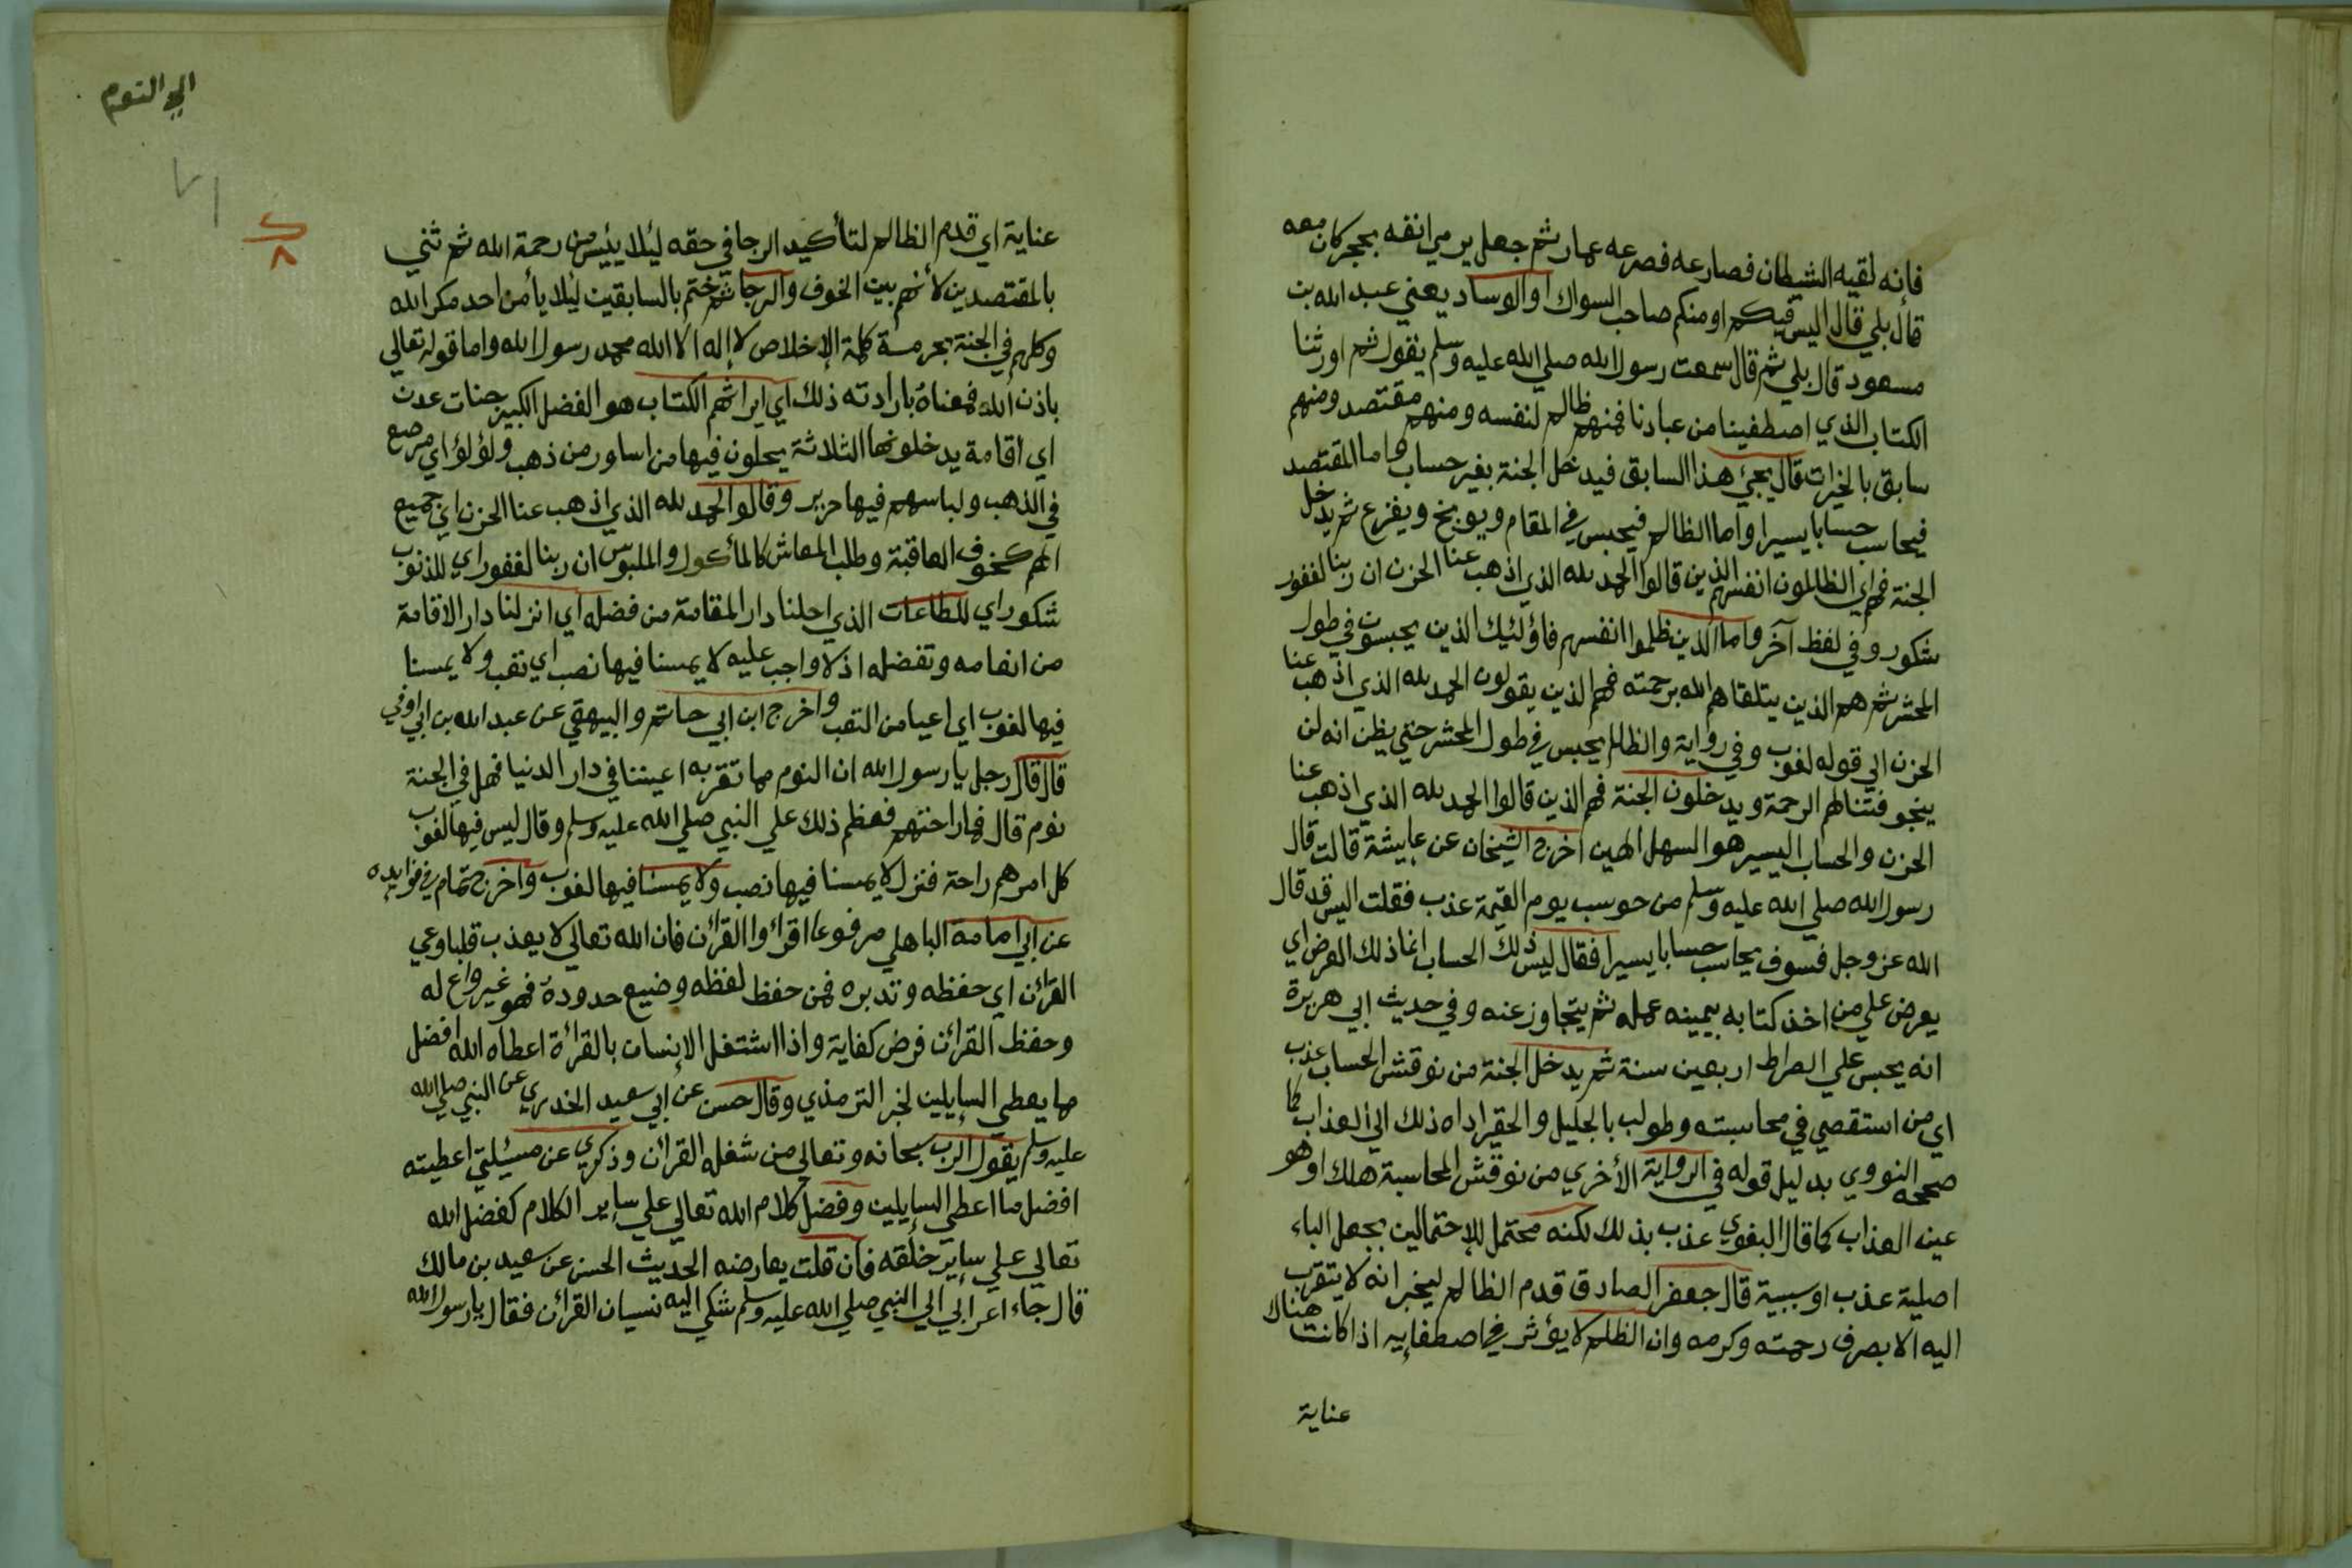 فانه لقيه الشيطان فصارعه فصرعه عمار ثم جعل يرمي انفه بحجر كان معه
قال بلي قال اليس فيكم او منكم صاحب السواك او الوساد يعني عبد الله بن
مسعود قال بلي ثم قال سمعت رسول الله صلي الله عليه وسلم يقول ثم اورثنا
الكتاب الذي اصطفينا من عبادنا فمنهم ظالم لنفسه ومنهم مقتصد ومنهم
سابق بالخيرات قال يجئ هذا السابق فيدخل الجنة بغير حساب واما المقتصد
فيحاسب حسابا يسيرا واما الظالم فيحبس في المقام ويوبخ ويفزع ثم يدخل
الجنة فهم اي الظالمون انفسهم الذين قالوا الحمد لله الذي اذهب عنا الحزن ان ربنا لغفور
شكور وفي لفظ آخر واما الذين ظلموا انفسهم فاؤلئيك الذين يحبسون في طول
المحشر ثم هم الذين يتلقاهم الله برحمته فهم الذين يقولون الحمد لله الذي اذهب عنا
الحزن الي قوله لغوب وفي رواية والظالم يحبس في طول المحشر حتي يظن انه لن
ينجو فتنالهم الرحمة ويدخلون الجنة فهم الذين قالوا الحمد لله الذي اذهب عنا
الحزن والحساب اليسير هو السهل الهين اخرج الشيخان عن عايشة قالت قال
رسول الله صلي الله عليه وسلم من حوسب يوم القيمة عذب فقلت اليس قد قال
الله عز وجل فسوف يحاسب حسابا يسيرا فقال ليس ذلك الحساب انما ذلك العرض اي
يعرض علي من اخذ كتابه بيمينه عمله ثم يتجاوز عنه وفي حديث ابي هريرة
انه يحبس علي الصراط اربعين سنة ثم يدخل الجنة من نوقش الحساب عذب
اي من استقصي في محاسبته وطولب بالجليل والحقير اداه ذلك الي العذاب كما
صححه النووي بدليل قوله في الرواية الأخري من نوقش المحاسبة هلك او هو
عينه العذاب كما قال البغوي عذب بذلك لكنه محتمل للإحتمالين بجعل الباء
اصلية عذب او سببية قال جعفر الصادق قدم الظالم ليخبر انه لا يتقرب
اليه الا بصرف رحمته وكرمه وان الظلم لا يؤثر في اصطفايه اذا كانت هناك
عناية
الي النوم
٧١
٨
عناية اي قدم الظالم لتأكيد الرجا في حقه ليلا يئيس من رحمة الله ثم ثني
بالمقتصدين لأنهم بين الخوف والرجا ثم ختم بالسابقين ليلا يأمن احد مكر الله
وكلهم في الجنة بحرمة كلمة الإخلاص لا إله الا الله محمد رسول الله واما قوله تعالي
باذن الله فمعناه بارادته ذلك اي ايراثهم الكتاب هو الفضل الكبير جنات عدن
اي اقامة يدخلونها الثلاثة يحلون فيها من اساور من ذهب ولؤلؤ اي مرصع
في الذهب ولباسهم فيها حرير وقالوا الحمد لله الذي اذهب عنا الحزن اي جميع
الهم كخوف العاقبة وطلب المعاش كالمأكول والملبوس ان ربنا لغفور اي للذنوب
شكور اي للطاعات الذي احلنا دار المقامة من فضله اي انزلنا دار الاقامة
من انعامه وتفضله اذ لا واجب عليه لا يمسنا فيها نصب اي تعب ولا يمسنا
فيها لغوب اي اعيا من التعب واخرج ابن ابي حاتم والبيهقي عن عبد الله بن ابي اوفي
قال قال رجل يا رسول الله ان النوم مما تقر به اعيننا في دار الدنيا فهل في الجنة
نوم قال فما راحتهم فعظم ذلك علي النبي صلي الله عليه وسلم وقال ليس فيها لغوب
كل امرهم راحة فنزل لا يمسنا فيها نصب ولا يمسنا فيها لغوب واخرج تمام في فوايده
عن ابي امامة الباهلي مرفوعا اقرائوا القرائن فان الله تعالي لا يعذب قلبا وعي
القرائن اي حفظه وتدبره فمن حفظ لفظه وضيع حدوده فهو غير واع له
وحفظ القرائن فرض كفاية واذا اشتغل الإنسان بالقرائة اعطاه الله افضل
ما يعطي السايلين لخبر الترمذي وقال حسن عن ابي سعيد الخدري عن النبي صلي الله
عليه وسلم يقول الرب سبحانه وتعالي من شغله القرائن وذكري عن مسئلتي اعطيته
افضل ما اعطي السايلين وفضل كلام الله تعالي علي ساير الكلام كفضل الله
تعالي علي ساير خلقه فان قلت يعارضه الحديث الحسن عن سعيد بن مالك
قال جاء اعرابي الي النبي صلي الله عليه وسلم شكي اليه نسيان القرائن فقال يا رسول الله